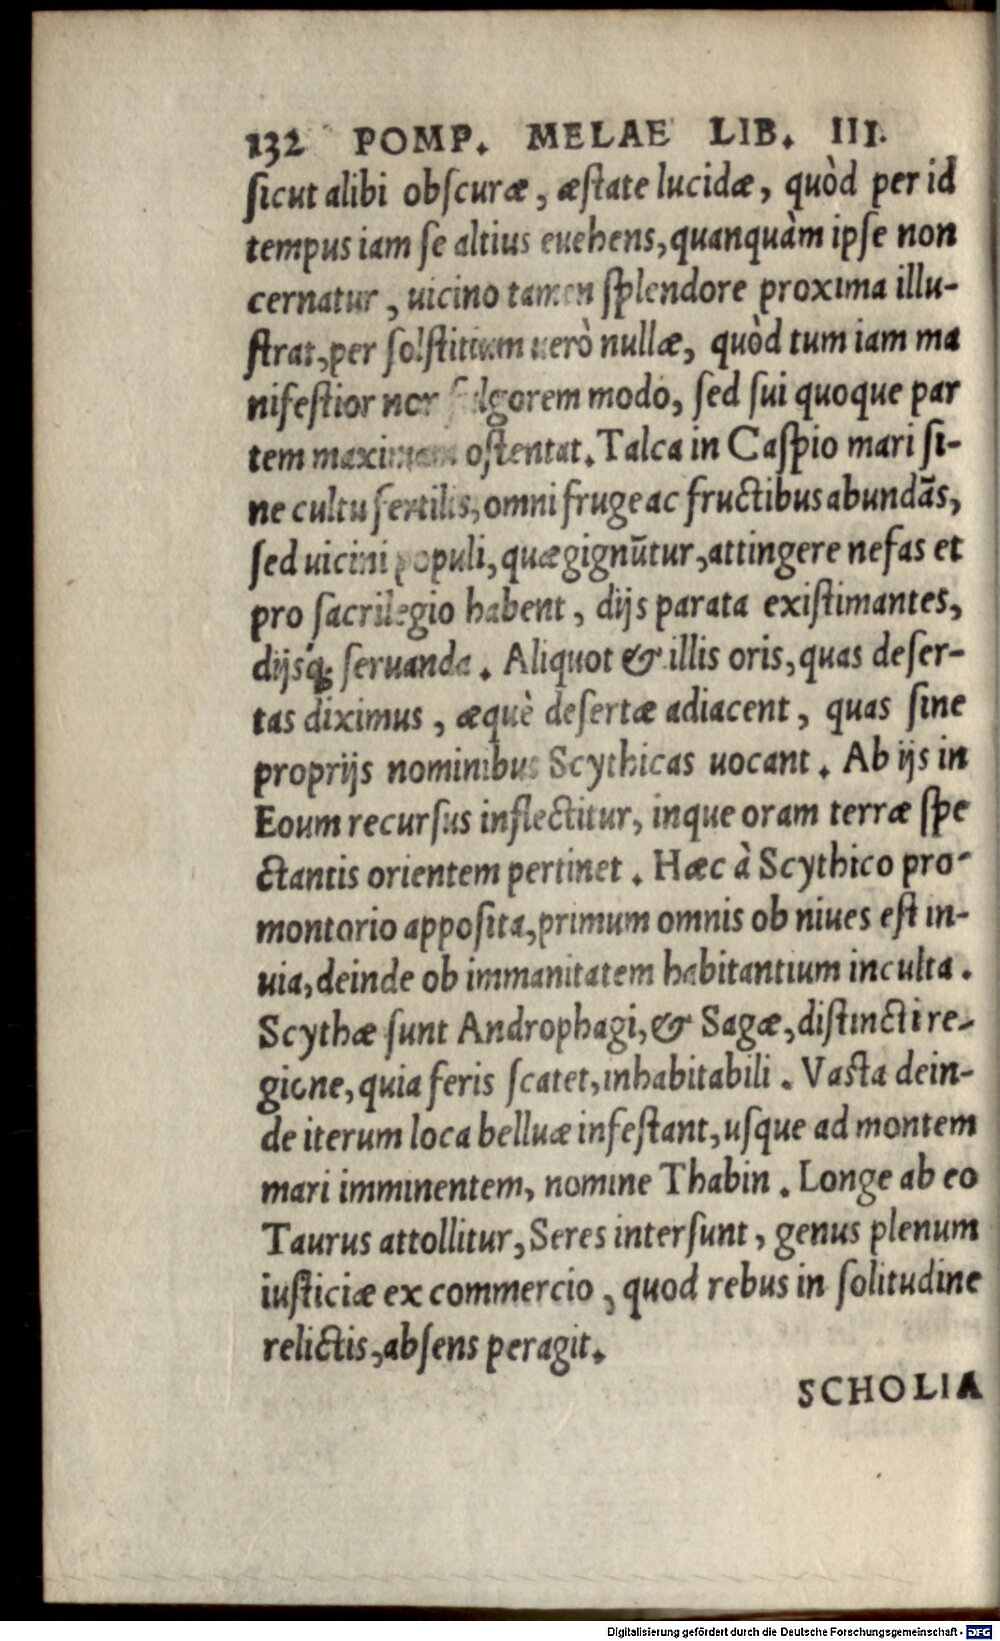 132 POMP. MELAE LIB. III.
ſicut alibi obſcuræ, æſtate lucidæ, quòd per id
tempus iam ſe altius euehens, quanquàm ipſe non
cernatur, uicino tamen ſplendore proxima illu-
ſtrat, per ſolſtitium uerò nullæ, quòd tum iam ma
nifeſtior non fulgorem modo, ſed ſui quoque par
tem maximam oſtentat. Talca in Caſpio mari ſi-
ne cultu fertilis, omni fruge ac fructibus abundãs,
ſed uicini populi, quæ gignũtur, attingere nefas et
pro ſacrilegio habent, dijs parata exiſtimantes,
dijsq́; ſeruanda. Aliquot & illis oris, quas deſer-
tas diximus, æquè deſertæ adiacent, quas ſine
proprijs nominibus Scythicas uocant. Ab ijs in
Eoum recurſus inflectitur, inque oram terræ ſpe
ctantis orientem pertinet. Hæc à Scythico pro-
montorio appoſita, primum omnis ob niues eſt in-
uia, deinde ob immanitatem habitantium inculta.
Scythæ ſunt Androphagi, & Sagæ, diſtincti re-
gione, quia feris ſcatet, inhabitabili. Vaſta dein-
de iterum loca belluæ infeſtant, uſque ad montem
mari imminentem, nomine Thabin. Longe ab eo
Taurus attollitur, Seres interſunt, genus plenum
iuſticiæ ex commercio, quod rebus in ſolitudine
relictis, abſens peragit.
SCHOLIA
Digitalisierung gefördert durch die Deutsche Forschungsgemeinschaft - DFG